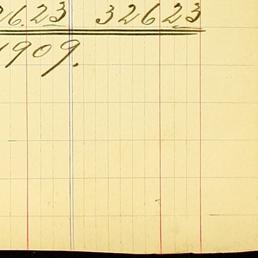 26.23 32623
1909.